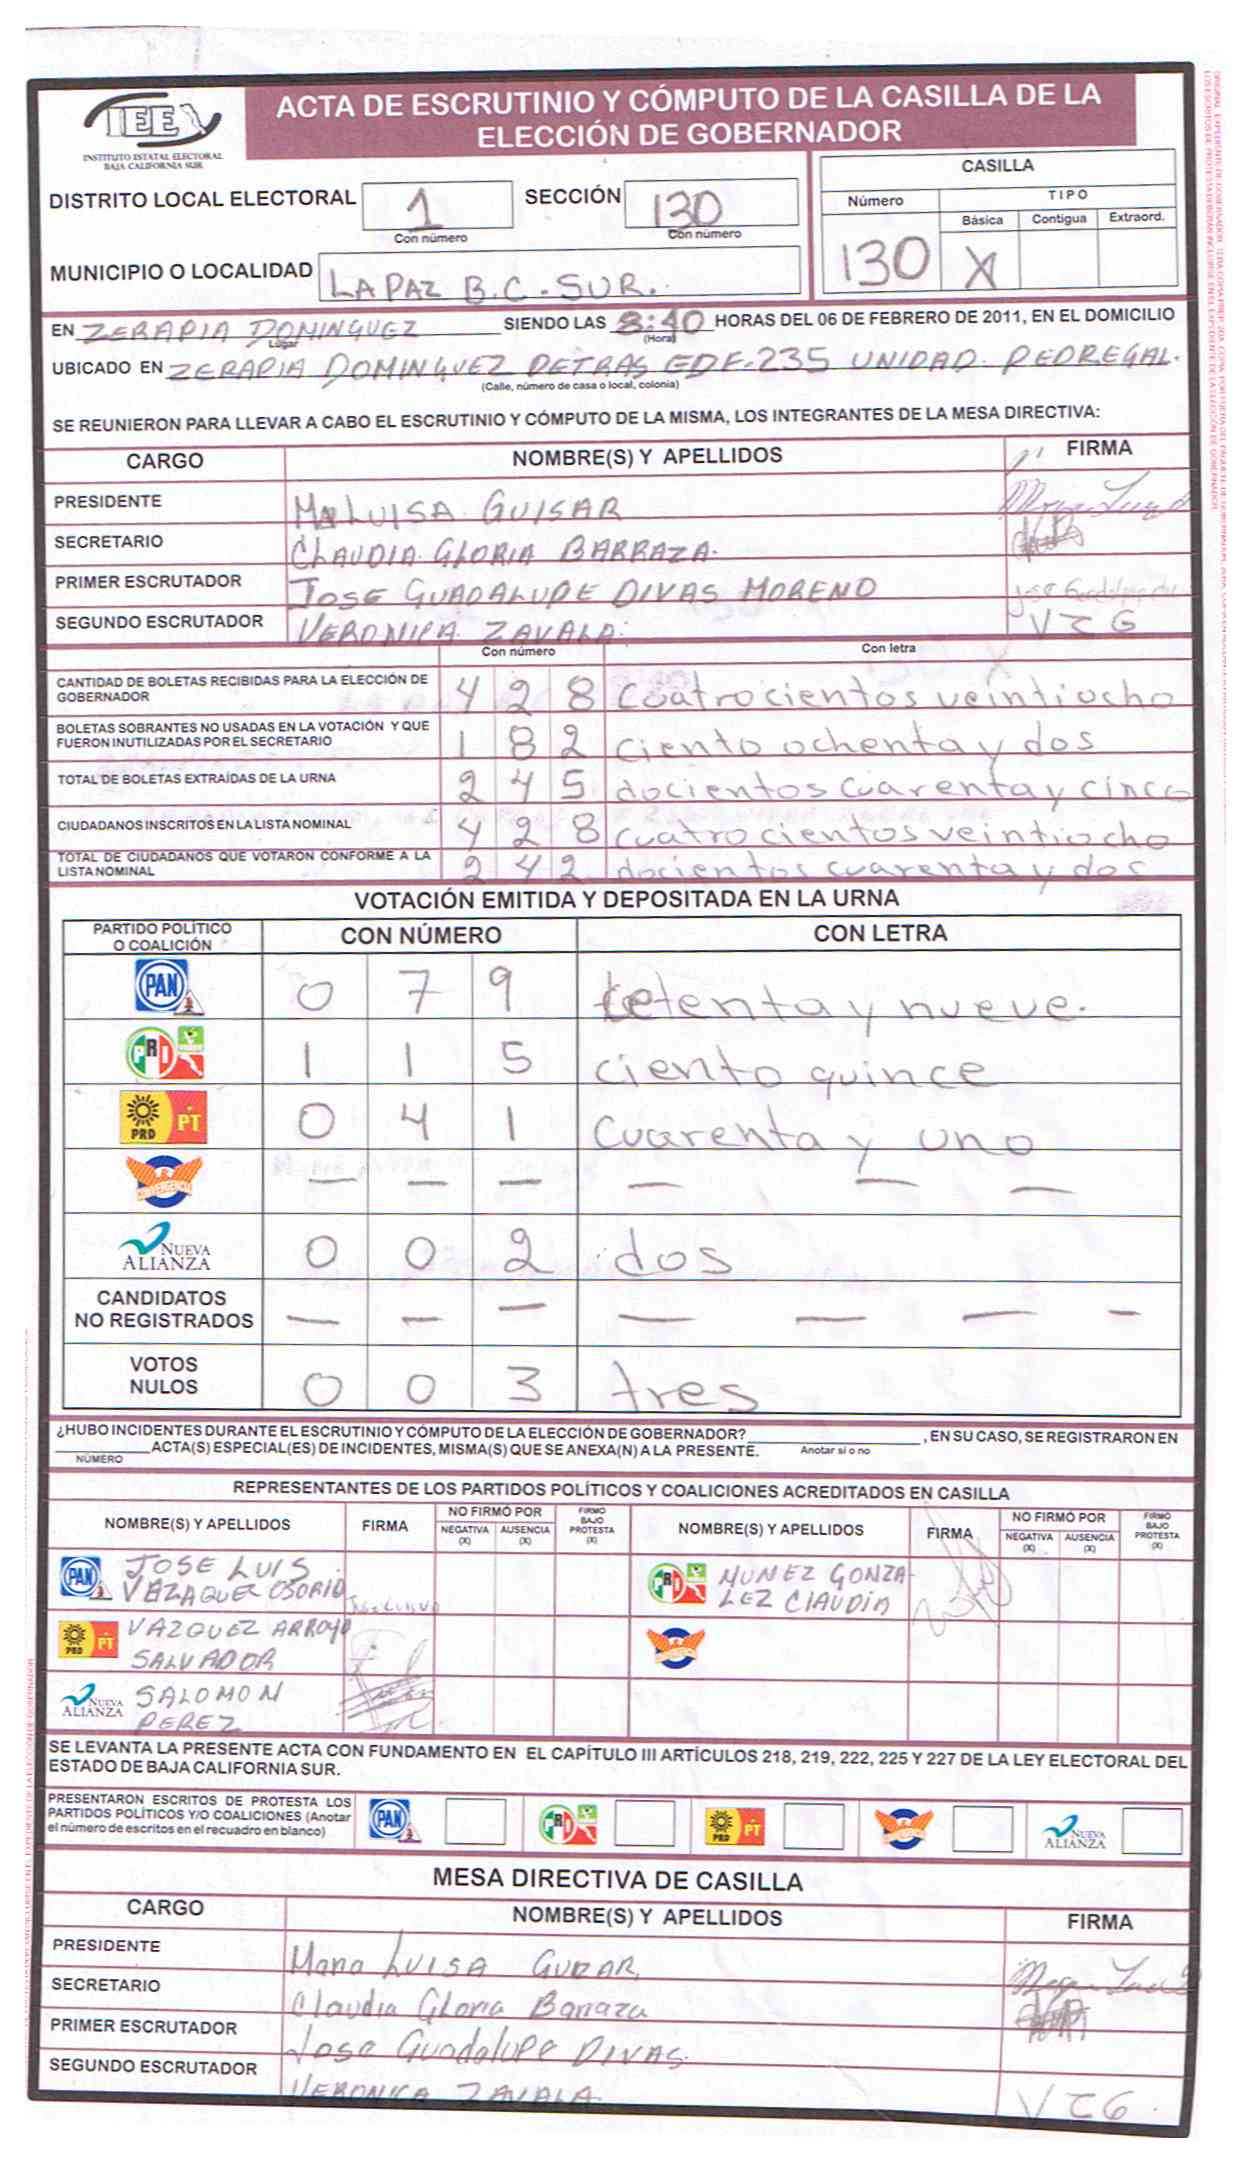 IEE
INSTITUTO ESTATAL ELECTORAL
BAJA CALIFORNIA SUR
ACTA DE ESCRUTINIO Y CÓMPUTO DE LA CASILLA DE LA
ELECCIÓN DE GOBERNADOR
DISTRITO LOCAL ELECTORAL 1 SECCIÓN 130
Con número Con número
CASILLA
Número TIPO
Básica Contigua Extraord.
130 X
MUNICIPIO O LOCALIDAD LA PAZ B.C. SUR.
EN ZERAPIA DOMINGUEZ SIENDO LAS 8:40 HORAS DEL 06 DE FEBRERO DE 2011, EN EL DOMICILIO
Lugar (Hora)
UBICADO EN ZERAPIA DOMINGUEZ DETRAS EDF. 235 UNIDAD PEDREGAL.
(Calle, número de casa o local, colonia)
SE REUNIERON PARA LLEVAR A CABO EL ESCRUTINIO Y CÓMPUTO DE LA MISMA, LOS INTEGRANTES DE LA MESA DIRECTIVA:
CARGO NOMBRE(S) Y APELLIDOS FIRMA
PRESIDENTE Ma LUISA GUISAR
SECRETARIO CLAUDIA GLORIA BARRAZA.
PRIMER ESCRUTADOR JOSE GUADALUPE DIVAS MORENO
SEGUNDO ESCRUTADOR VERONICA ZAVALA. VZG
Con número Con letra
CANTIDAD DE BOLETAS RECIBIDAS PARA LA ELECCIÓN DE
GOBERNADOR 4 2 8 Cuatrocientos veintiocho
BOLETAS SOBRANTES NO USADAS EN LA VOTACIÓN Y QUE
FUERON INUTILIZADAS POR EL SECRETARIO 1 8 2 ciento ochenta y dos
TOTAL DE BOLETAS EXTRAÍDAS DE LA URNA 2 4 5 docientos cuarenta y cinco
CIUDADANOS INSCRITOS EN LA LISTA NOMINAL 4 2 8 cuatrocientos veintiocho
TOTAL DE CIUDADANOS QUE VOTARON CONFORME A LA
LISTA NOMINAL 2 4 2 docientos cuarenta y dos
VOTACIÓN EMITIDA Y DEPOSITADA EN LA URNA
PARTIDO POLÍTICO
O COALICIÓN CON NÚMERO CON LETRA
PAN 0 7 9 setenta y nueve.
PRI 1 1 5 ciento quince
PRD PT 0 4 1 cuarenta y uno
CONVERGENCIA — — — — — —
NUEVA ALIANZA 0 0 2 dos
CANDIDATOS
NO REGISTRADOS — — — — — —
VOTOS
NULOS 0 0 3 tres
¿HUBO INCIDENTES DURANTE EL ESCRUTINIO Y CÓMPUTO DE LA ELECCIÓN DE GOBERNADOR? , EN SU CASO, SE REGISTRARON EN
ACTA(S) ESPECIAL(ES) DE INCIDENTES, MISMA(S) QUE SE ANEXA(N) A LA PRESENTE. Anotar sí o no
NÚMERO
REPRESENTANTES DE LOS PARTIDOS POLÍTICOS Y COALICIONES ACREDITADOS EN CASILLA
NOMBRE(S) Y APELLIDOS FIRMA NO FIRMÓ POR NEGATIVA (X) AUSENCIA (X) FIRMÓ BAJO PROTESTA (X) NOMBRE(S) Y APELLIDOS FIRMA NO FIRMÓ POR NEGATIVA (X) AUSENCIA (X) FIRMÓ BAJO PROTESTA (X)
PAN JOSE LUIS
VAZAQUEZ OSORIO
PRI NUNEZ GONZA-
LEZ CLAUDIA
PRD PT VAZQUEZ ARROYO
SALVADOR
NUEVA ALIANZA SALOMON
PEREZ
SE LEVANTA LA PRESENTE ACTA CON FUNDAMENTO EN EL CAPÍTULO III ARTÍCULOS 218, 219, 222, 225 Y 227 DE LA LEY ELECTORAL DEL
ESTADO DE BAJA CALIFORNIA SUR.
PRESENTARON ESCRITOS DE PROTESTA LOS
PARTIDOS POLÍTICOS Y/O COALICIONES (Anotar
el número de escritos en el recuadro en blanco) PAN PRI PRD PT NUEVA ALIANZA
MESA DIRECTIVA DE CASILLA
CARGO NOMBRE(S) Y APELLIDOS FIRMA
PRESIDENTE Maria LUISA GUIZAR
SECRETARIO Claudia Gloria Barraza
PRIMER ESCRUTADOR Jose Guadalupe DIVAS.
SEGUNDO ESCRUTADOR VERONICA ZAVALA. VZG